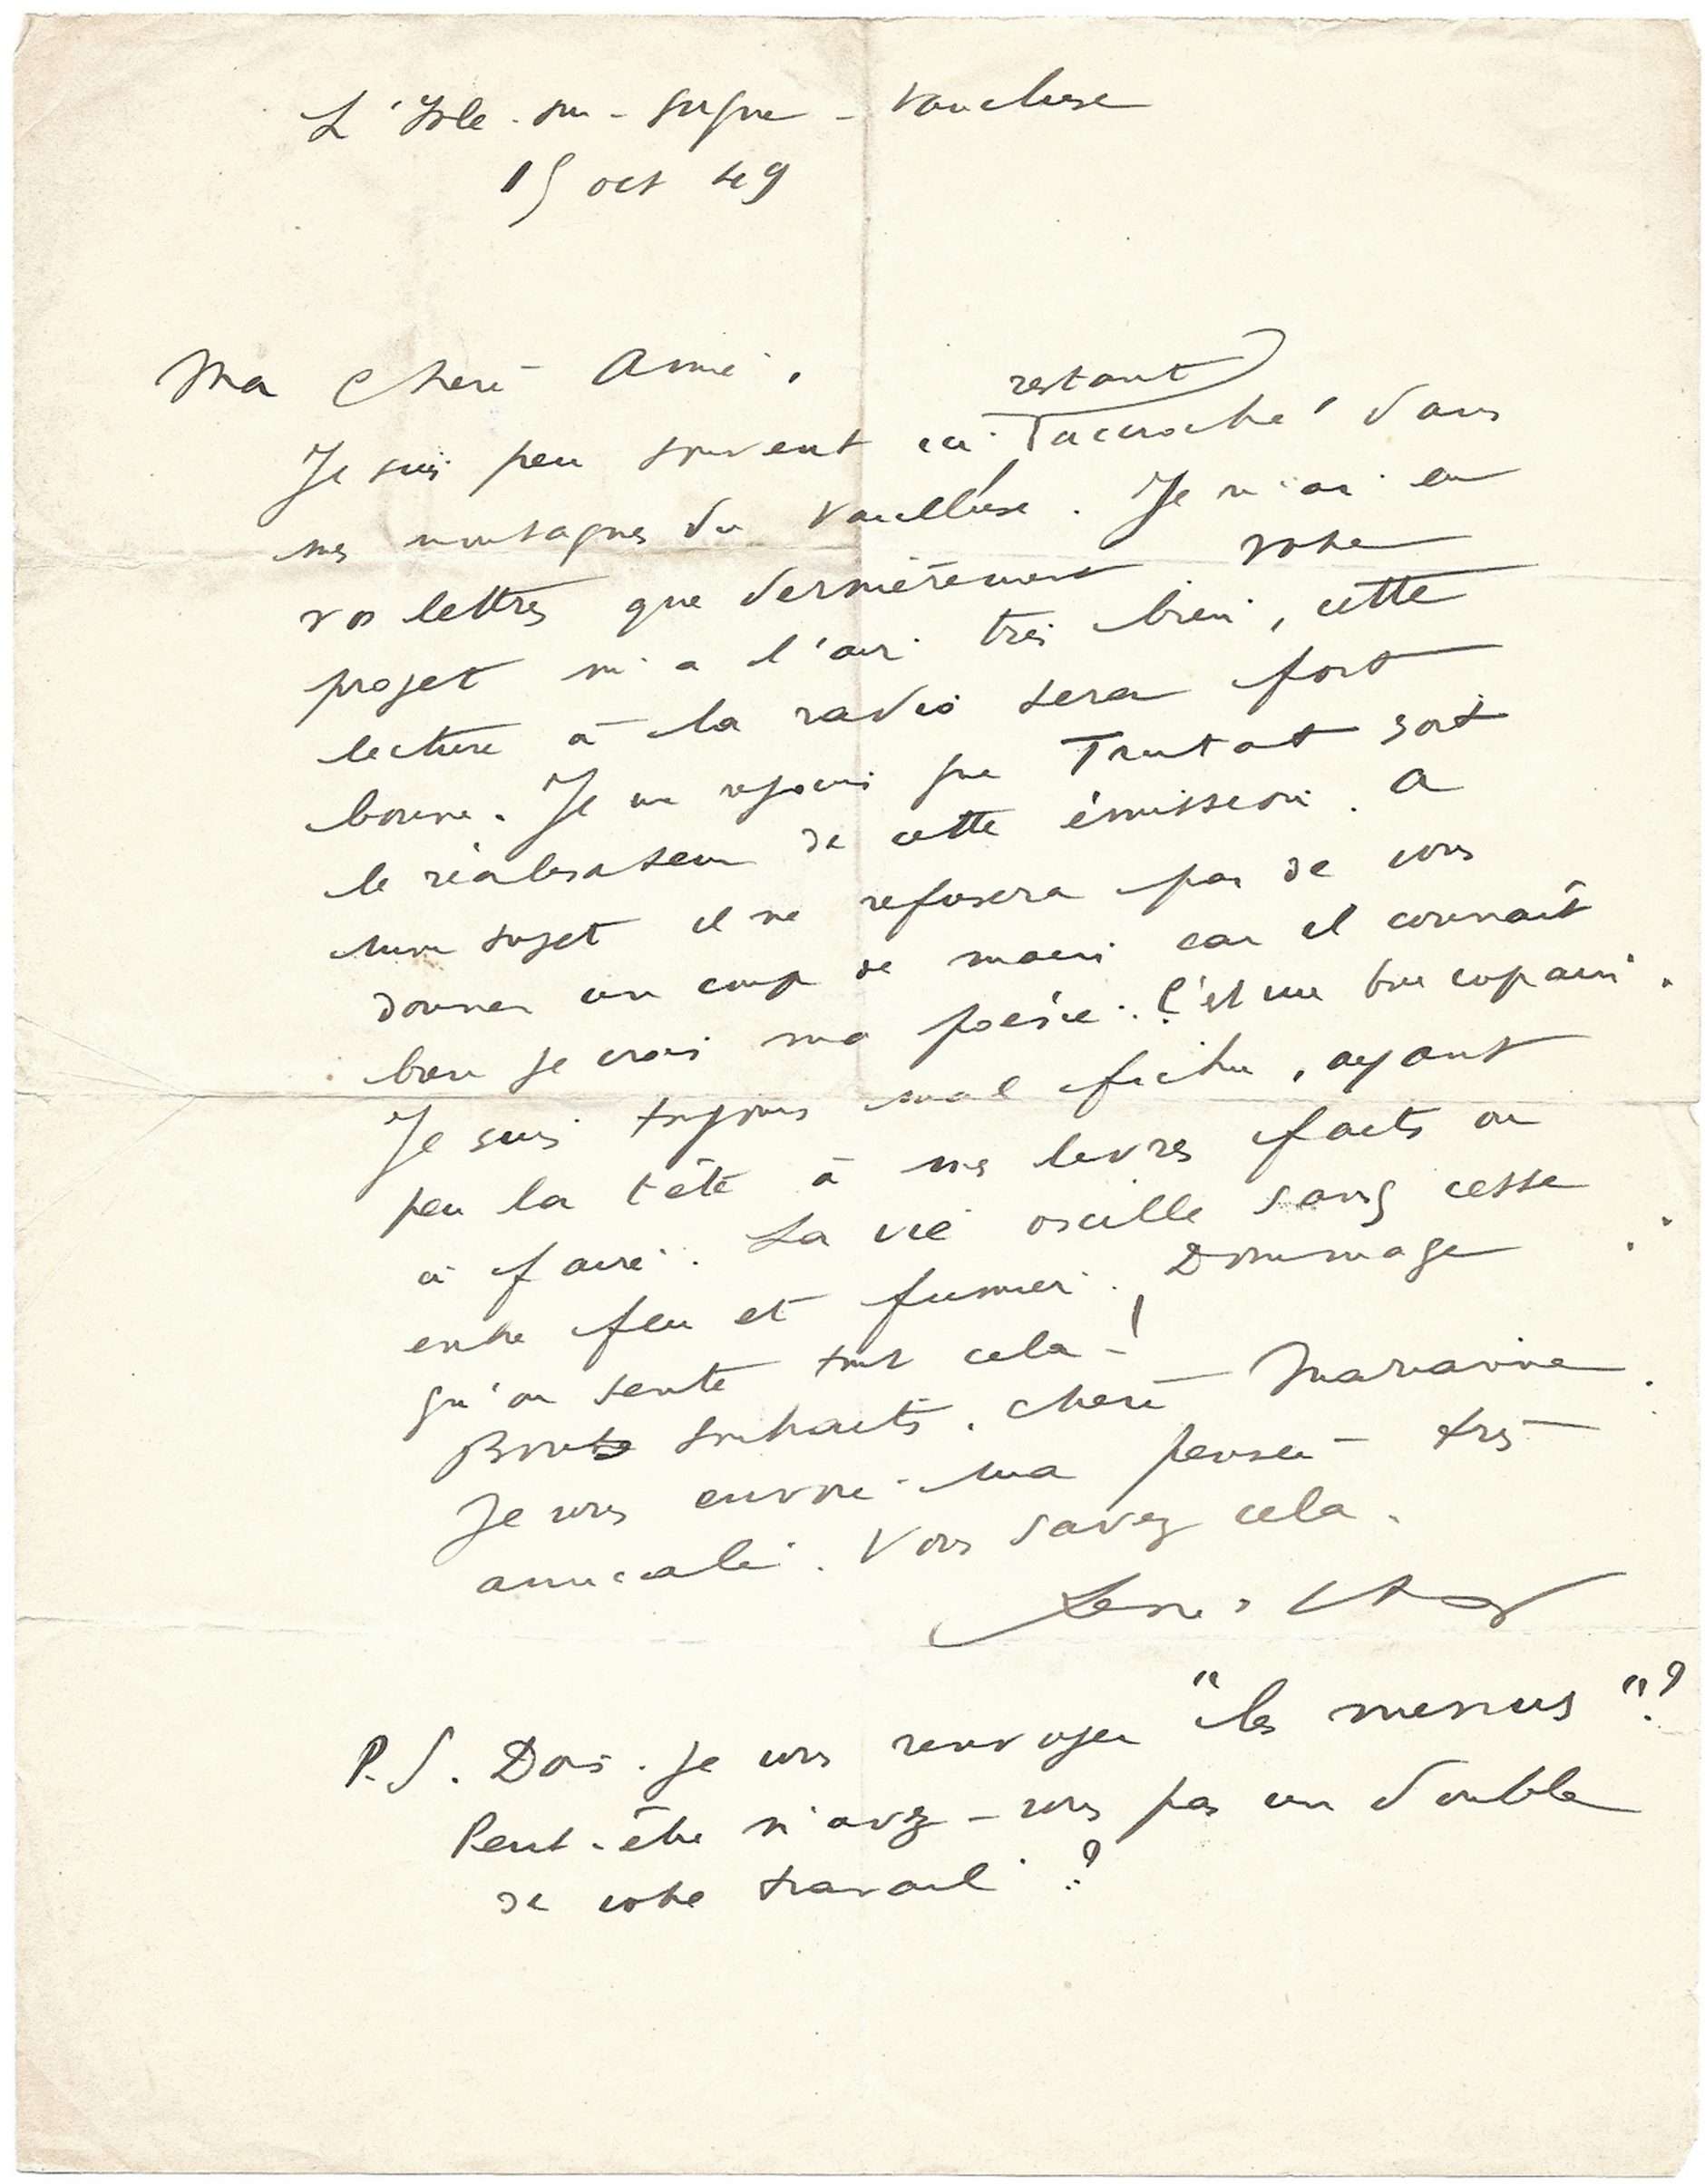 L'Isle-sur-Sorgue - Vaucluse
15 oct 49
Ma Chère Amie,
restant
Je suis peu souvent ici accroché dans
mes montagnes du Vaucluse. Je n'ai eu
vos lettres que dernièrement votre
projet m'a l'air très bien, cette
lecture à la radio sera fort
bonne. Je me réjouis que Trutat soit
le réalisateur de cette émission. A
mon sujet il ne refusera pas de vous
donner un coup de main car il connaît
bien je crois ma poésie. C'est un bon copain.
Je suis toujours mal fichu, ayant
peu la tête à mes livres faits ou
à faire. La vie oscille sans cesse
entre feu et fumier. Dommage
qu'on sente tout cela !
Bons souhaits, chère Marianne.
Je vous envoie ma pensée très
amicale. Vous savez cela.
René Char
P.S. Dois-je vous renvoyer "les menus"?
Peut-être n'avez-vous pas un double
de votre travail ?